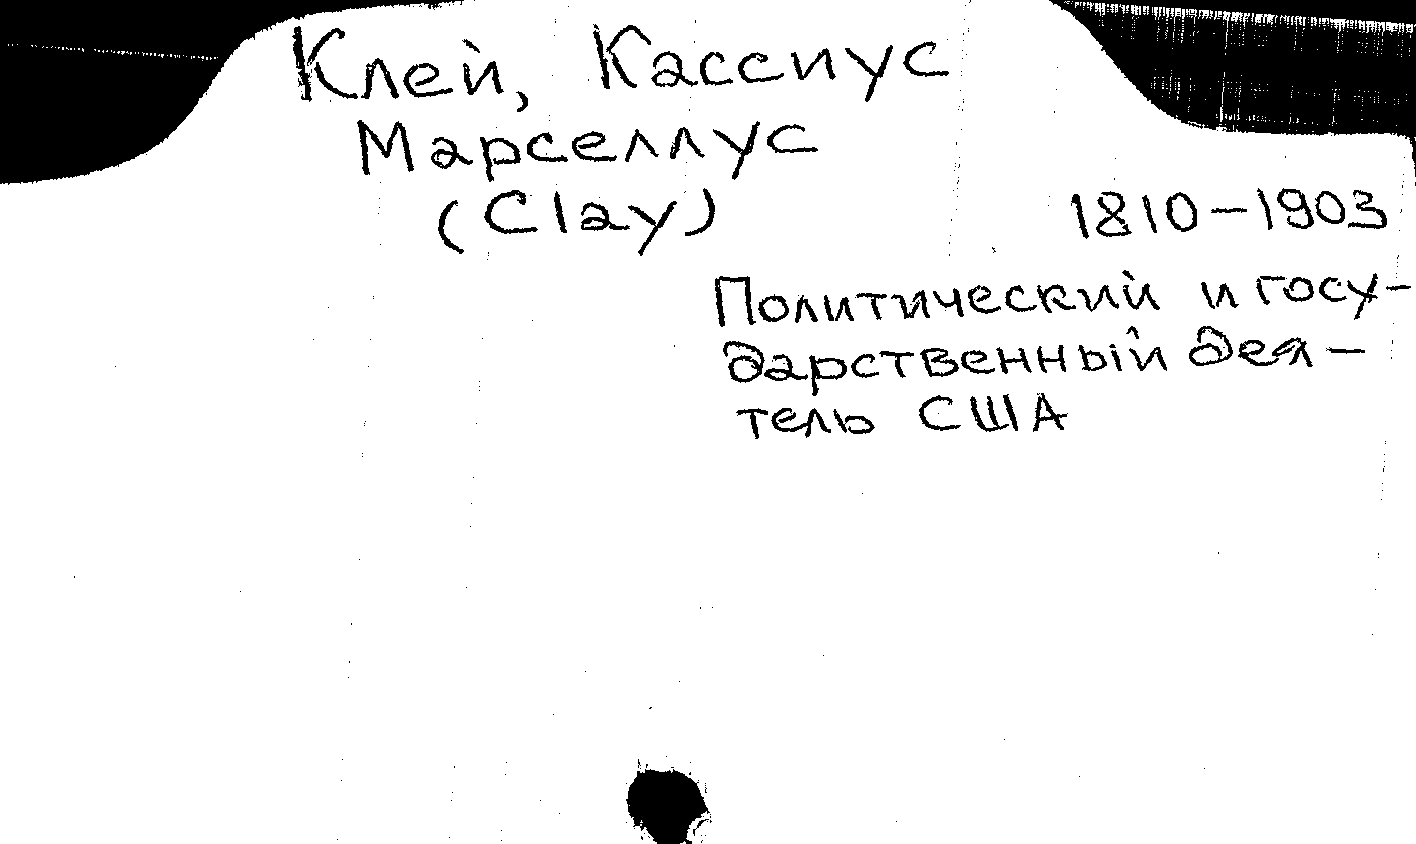 Клей, Кассиус
Марселлус
(Clay)
1810-1903
Политический и госу-
дарственный дея-
тель США